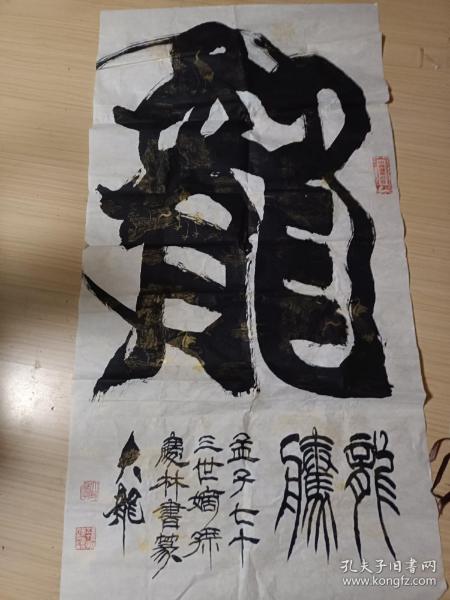 龍
龍
騰
孟子七十
三世嫡孫
慶林書篆
龍
孔夫子旧书网
www.kongfz.com